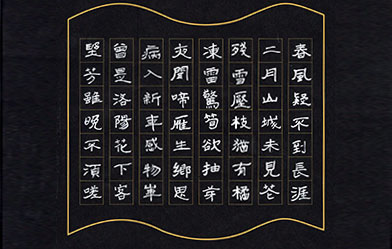 春風疑不到長涯
二月山城未見花
殘雪壓枝猶有橘
凍雷驚筍欲抽芽
夜聞啼雁生鄉思
病入新年感物華
曾是洛陽花下客
野芳雖晚不須嗟